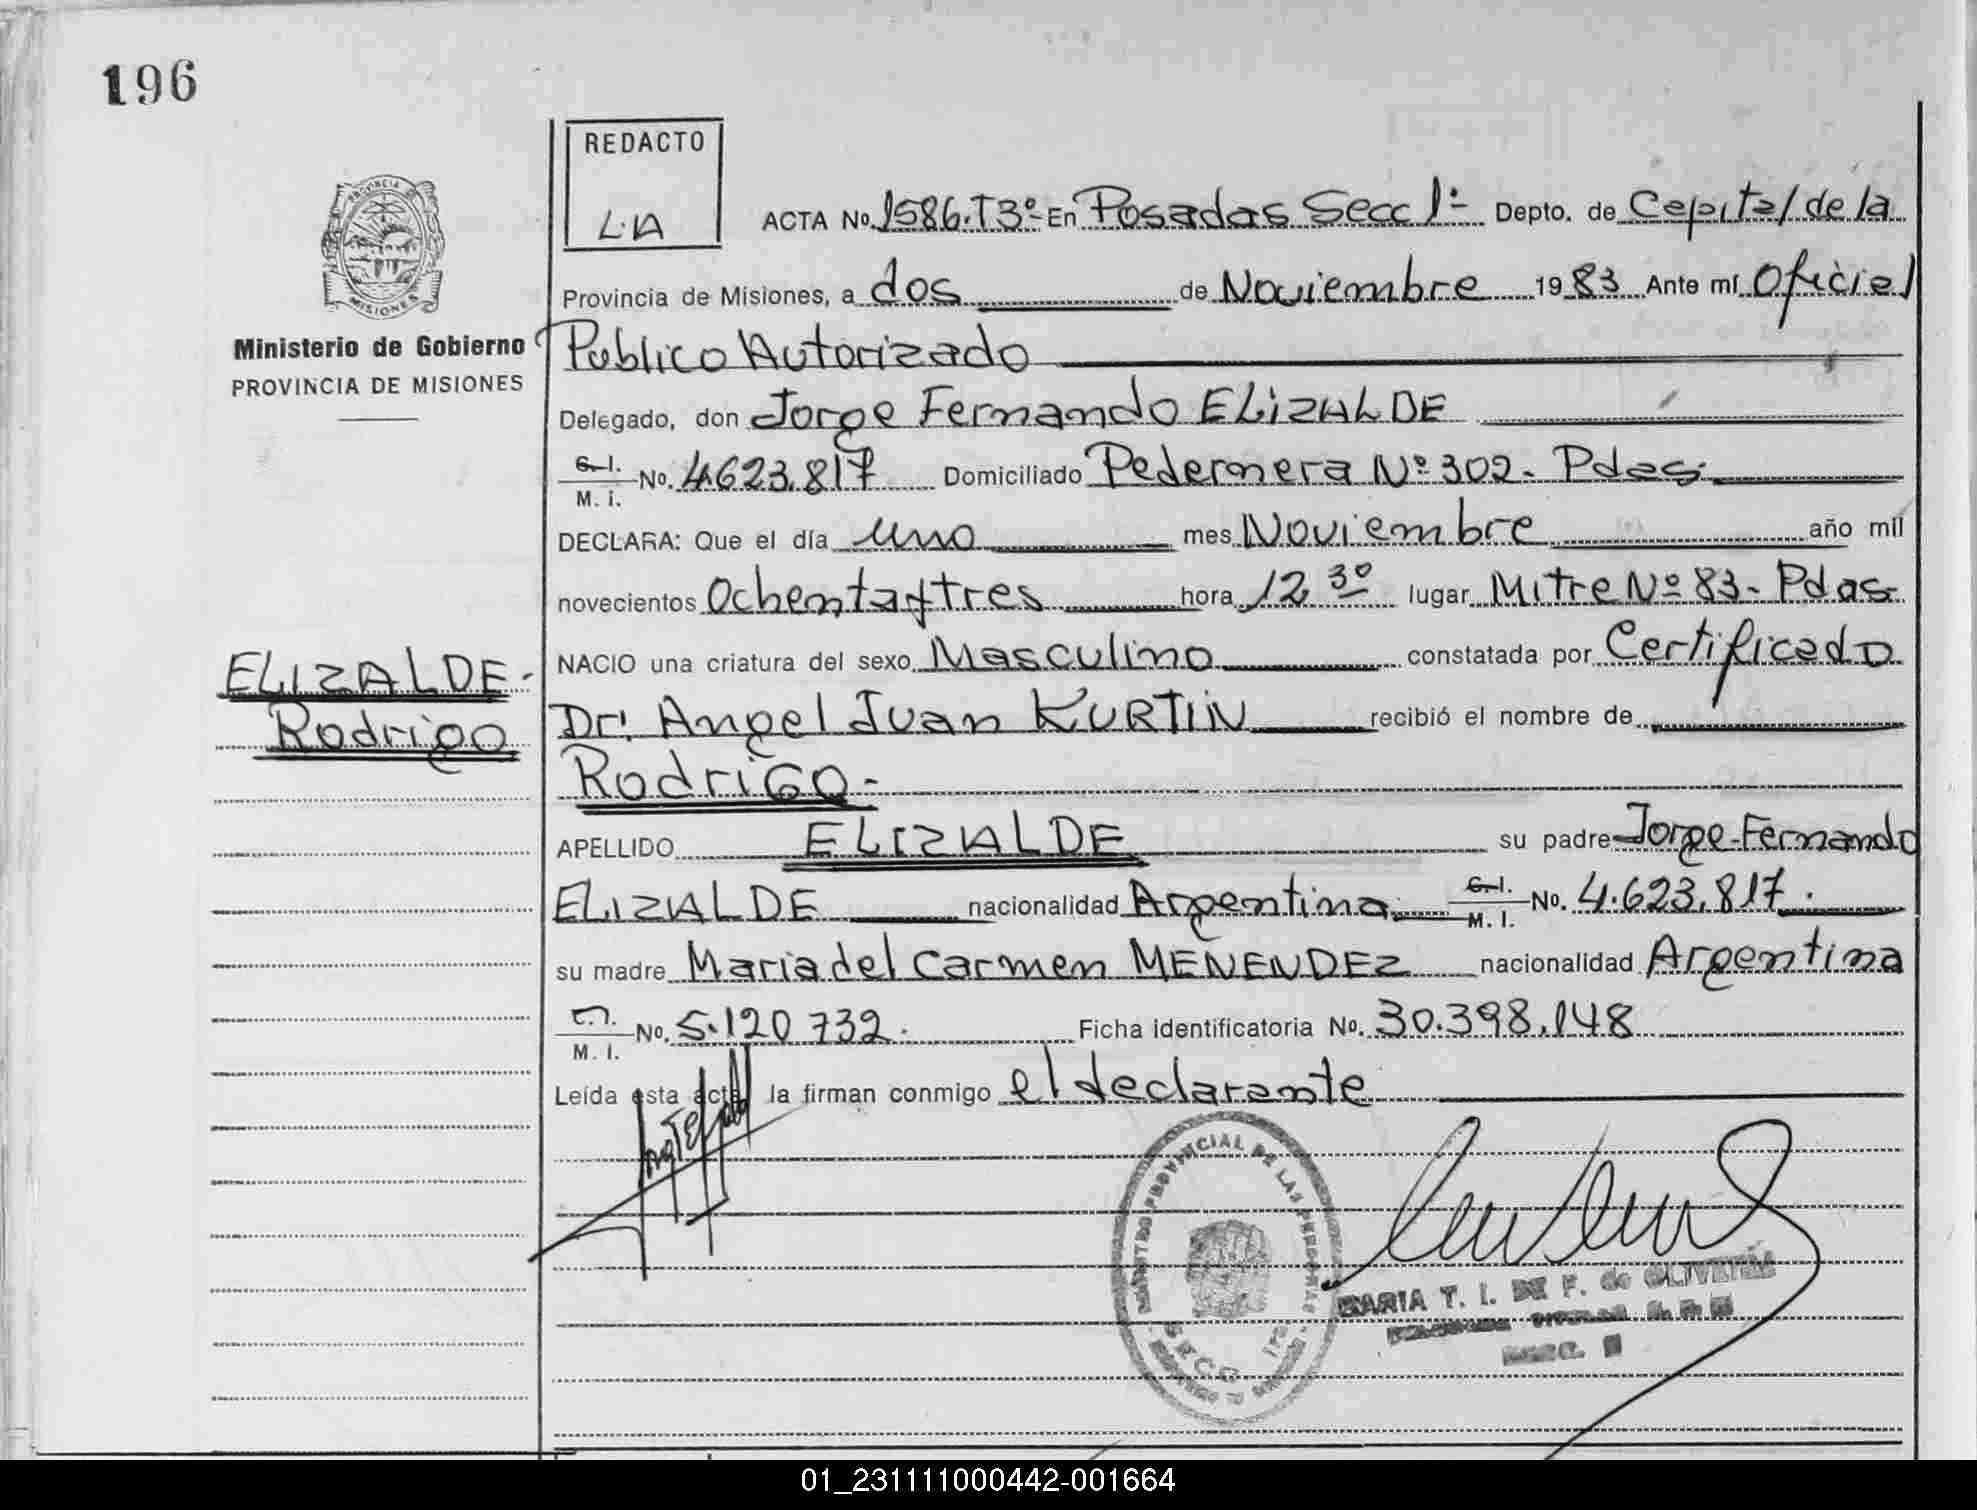 196
REDACTO
L.A
PROVINCIA DE
MISIONES
Ministerio de Gobierno
PROVINCIA DE MISIONES
ELIZALDE.
Rodrigo
ACTA No. 1586.T3º En Posadas Secc 1ª Depto. de Capital de la
Provincia de Misiones, a dos de Noviembre 1983 Ante mí Oficial
Publico Autorizado
Delegado, don Jorge Fernando ELIZALDE
C.I.
M. I. No. 4.623.817 Domiciliado Pedernera Nº 302. Pdas.
DECLARA: Que el día uno mes Noviembre año mil
novecientos Ochenta y tres hora 12 30 lugar Mitre Nº 83. Pdas.
NACIO una criatura del sexo Masculino constatada por Certificado
Dr. Angel Juan KURTIN recibió el nombre de
Rodrigo.
APELLIDO ELIZALDE su padre Jorge Fernando
ELIZALDE nacionalidad Argentina C.I.
M. I. No. 4.623.817.
su madre Maria del Carmen MENENDEZ nacionalidad Argentina
C.I.
M. I. No. 5.120 732. Ficha identificatoria No. 30.398.148
Leída esta acta la firman conmigo el declarante
PROVINCIAL DE LAS PERSONAS
SECC 1ra
MARIA T. I. DE F. de OLIVEIRA
01_231111000442-001664